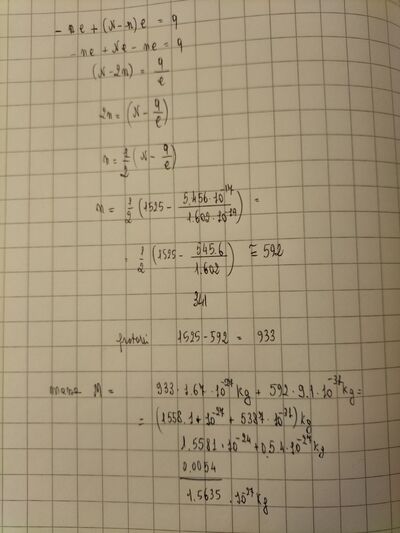 - ne + (N-n)e = q
- ne + Ne - ne = q
(N-2n) = q/e
2n = (N - q/e)
n = 1/2 (N - q/e)
n = 1/2 (1525 - 5.456·10^-17 / 1.602·10^-19) =
= 1/2 (1525 - 545.6 / 1.602) ≅ 592
341
protoni 1525 - 592 = 933
massa M = 933 · 1.67 · 10^-27 kg + 592 · 9.1 · 10^-31 kg =
= (1558.1 · 10^-27 + 5387 · 10^-31) kg
1.5581 · 10^-24 + 0.54 · 10^-27 kg
0.0054
1.5635 · 10^-27 kg